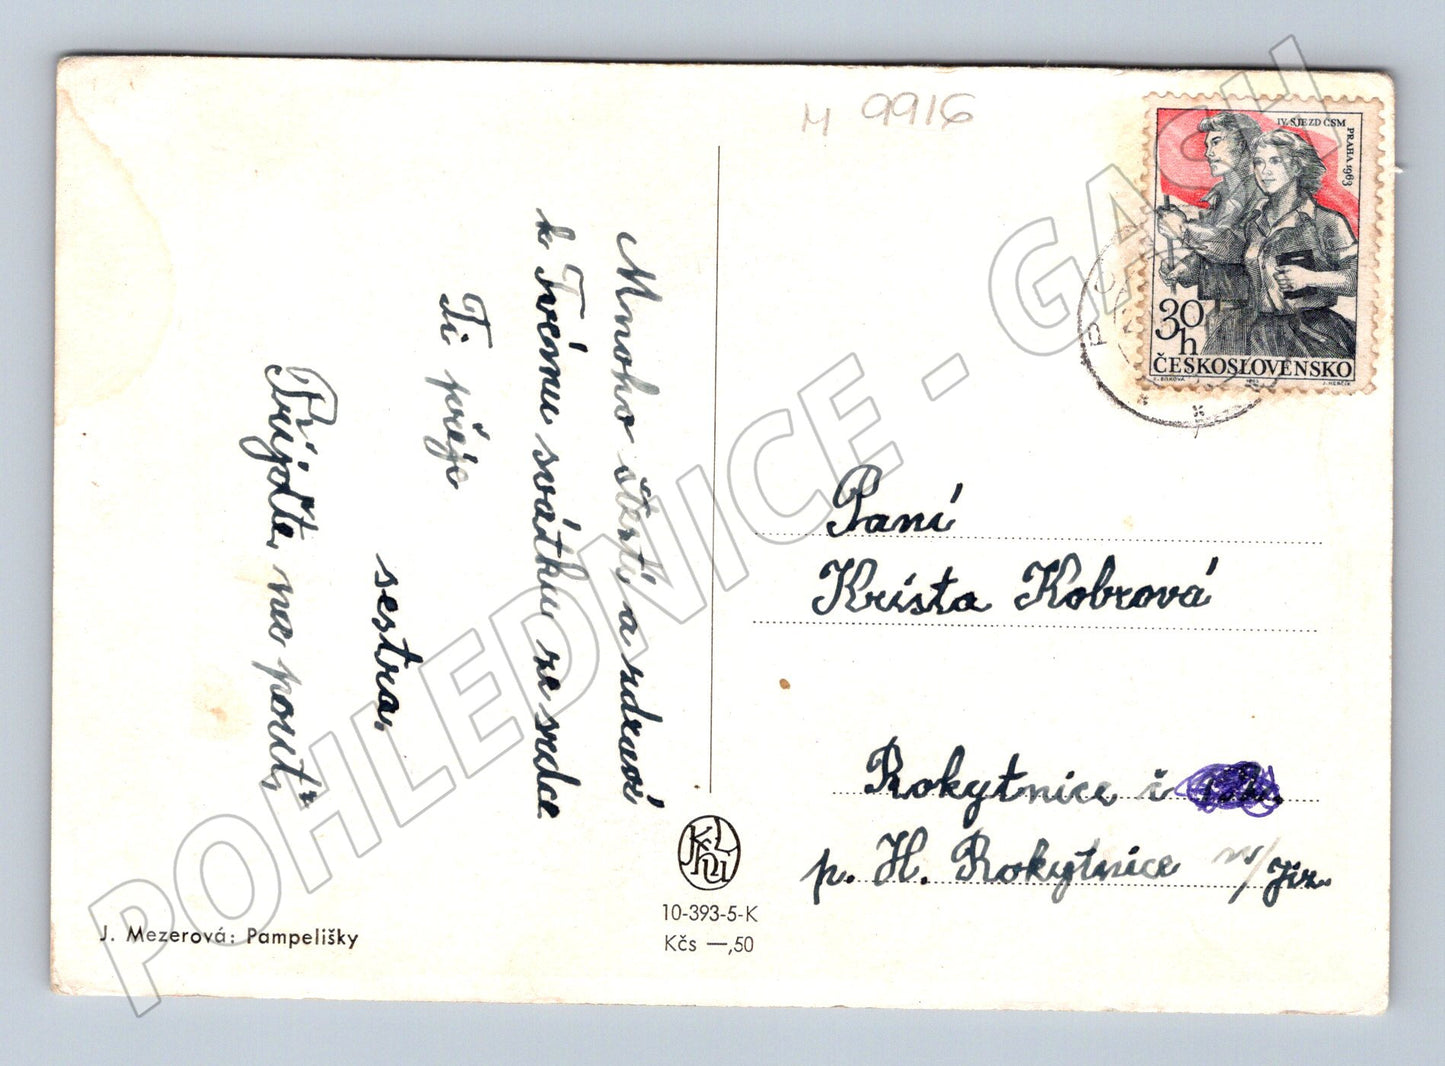 M 9916
IV. SJEZD ČSM
PRAHA 1963
30
h
ČESKOSLOVENSKO
Mnoho štěstí a zdraví
k Tvému svátku ze srdce
Ti přeje
sestra.
Přijďte na pouť.
Paní
Krista Kobrová
Rokytnice
p. H. Rokytnice n/Jiz.
10-393-5-K
Kčs —,50
J. Mezerová: Pampelišky
POHLEDNICE - GASH